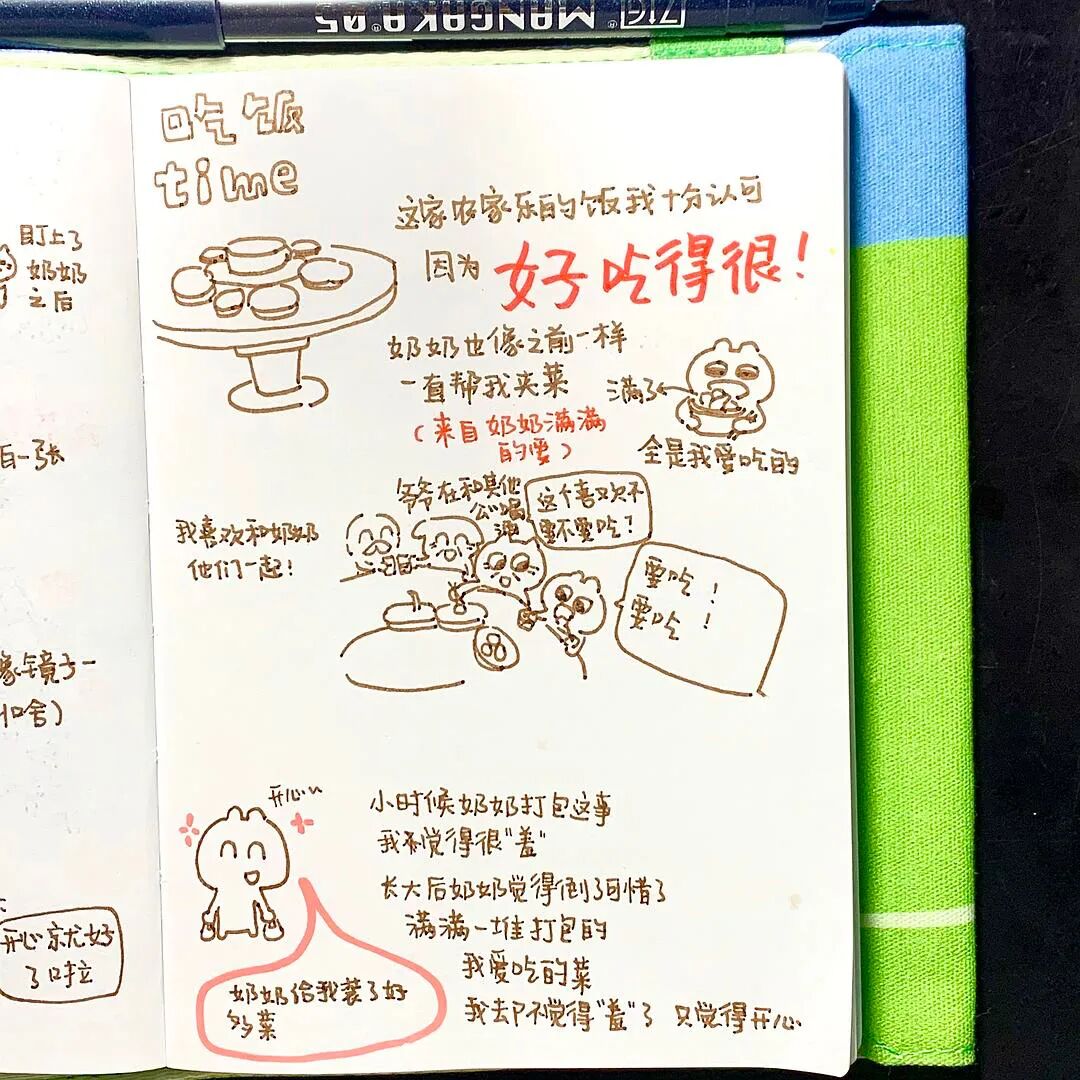 MANGAKA 05
盯上了
奶奶
之后
一张
像镜子一
和舍)
开心就好
了口拉
吃饭
time
这家农家乐的饭我十分认可
因为 好吃得很!
奶奶也像之前一样
一直帮我夹菜
(来自奶奶满满
的爱)
满了
全是我爱吃的
我喜欢和奶奶
他们一起!
爷爷在和其他
公喝
酒
这个喜欢不
要不要吃!
要吃!
要吃!
开心
小时候奶奶打包这事
我不觉得很"羞"
长大后奶奶觉得倒了可惜了
满满一堆打包的
我爱吃的菜
我却不觉得"羞"了 只觉得开心
奶奶给我装了好
多菜